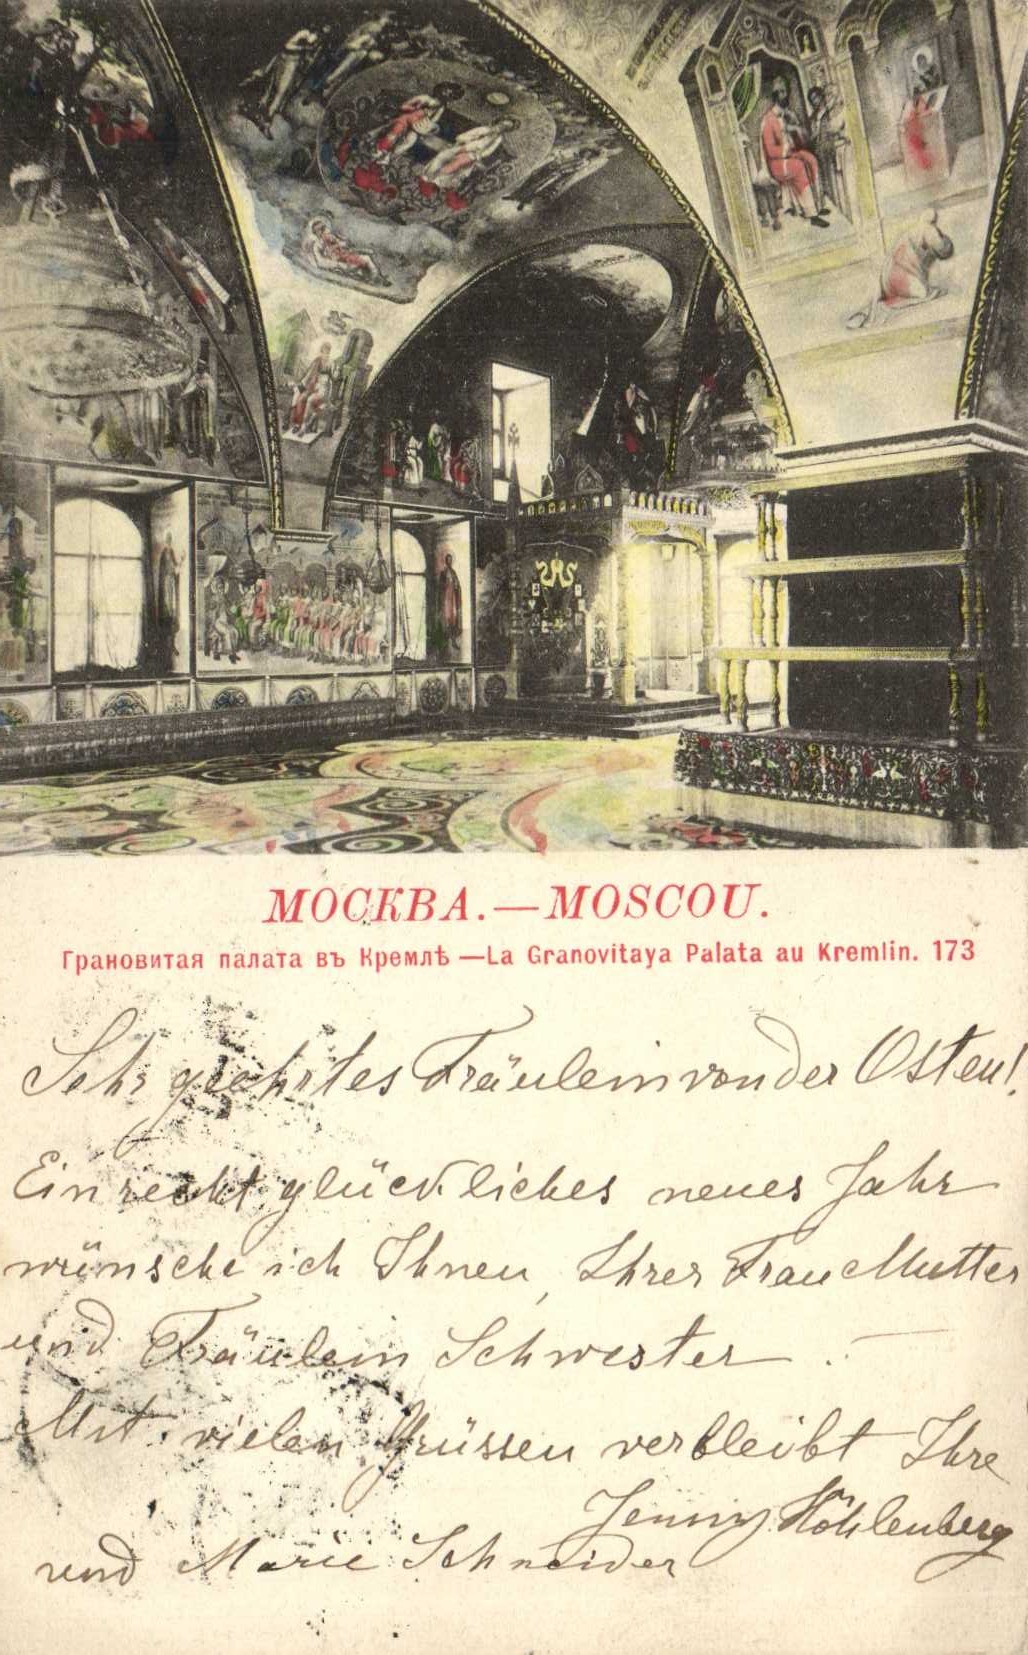 МОСКВА.—MOSCOU.
Грановитая палата въ Кремлѣ —La Granovitaya Palata au Kremlin. 173
Sehr geehrtes Fräulein von der Osten!
Ein recht glückliches neues Jahr
wünsche ich Ihnen, Ihrer Frau Mutter
und Fräulein Schwester.
Mit vielen Grüssen verbleibt Ihre
Jenny Höhlenberg
und Marie Schneider